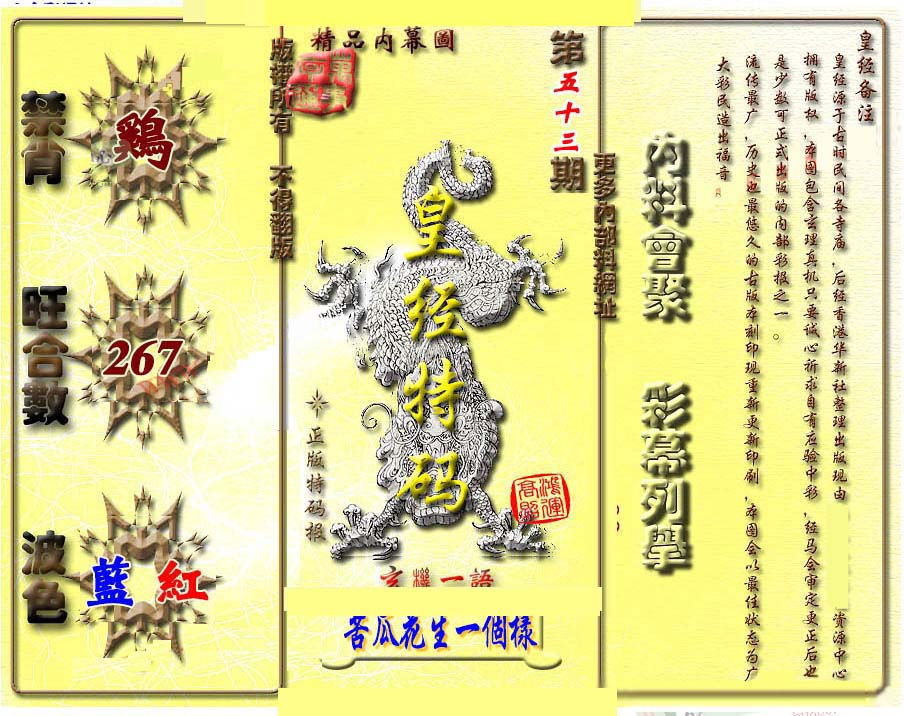 精品内幕圖
版權所有 不得翻版
第五十三期
更多內部料網址
禁肖
鷄
旺合數
267
波色
藍 紅
皇经特码
正版特码报
鴻運高照
玄機一語
苦瓜花生一個樣
內料會聚
彩幕列舉
皇经备注
皇经源于古时民间各寺庙,后经香港华新社整理出版现由 资源中心
拥有版权,本图包含玄理真机只要诚心祈求自有应验中彩,经马会审定更正后也
是少数可正式出版的内部彩报之一。
流传最广,历史也最悠久的古版本刻印现重新更新印刷,本图会以最佳状态为广
大彩民造出福音